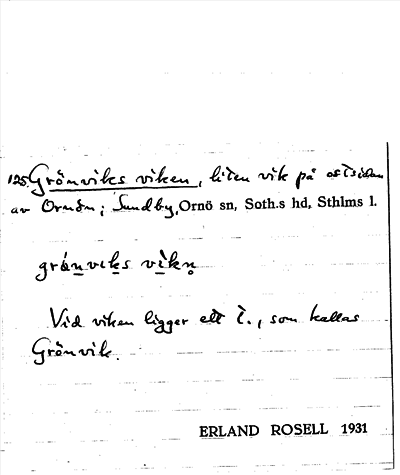 125. Grönviks viken, liten vik på ostsidan
av Ornön; Sundby, Ornö sn, Soth.s hd, Sthlms l.
grö́nviks vìkn̥
Vid viken ligger ett t., som kallas
Grönvik.
ERLAND ROSELL 1931